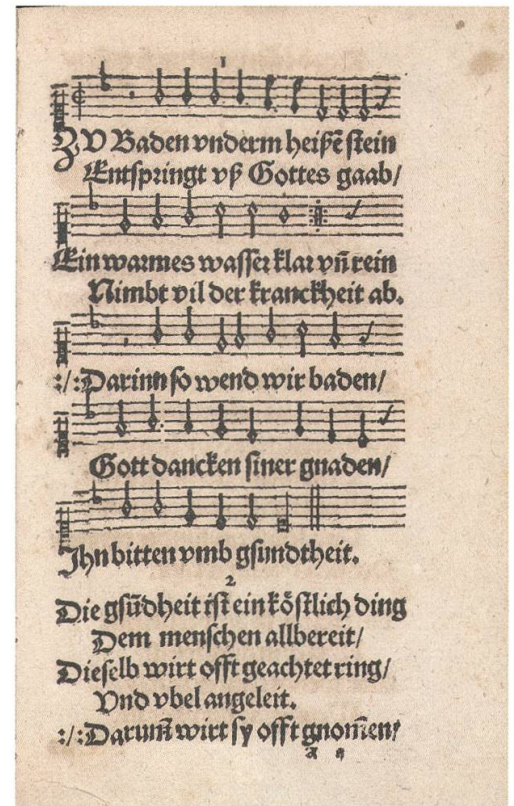 1
ZV Baden vnderm heißē stein
Entspringt vß Gottes gaab/
Ein warmes wasser klar vñ rein
Nimbt vil der kranckheit ab.
:/:Darinn so wend wir baden/
Gott dancken siner gnaden/
Ihn bitten vmb gsundtheit.
2
Die gsūdheit ist ein kőstlich ding
Dem menschen allbereit/
Dieselb wirt offt geachtet ring/
Vnd vbel angeleit.
:/:Darum̄ wirt sy offt gnom̄en/